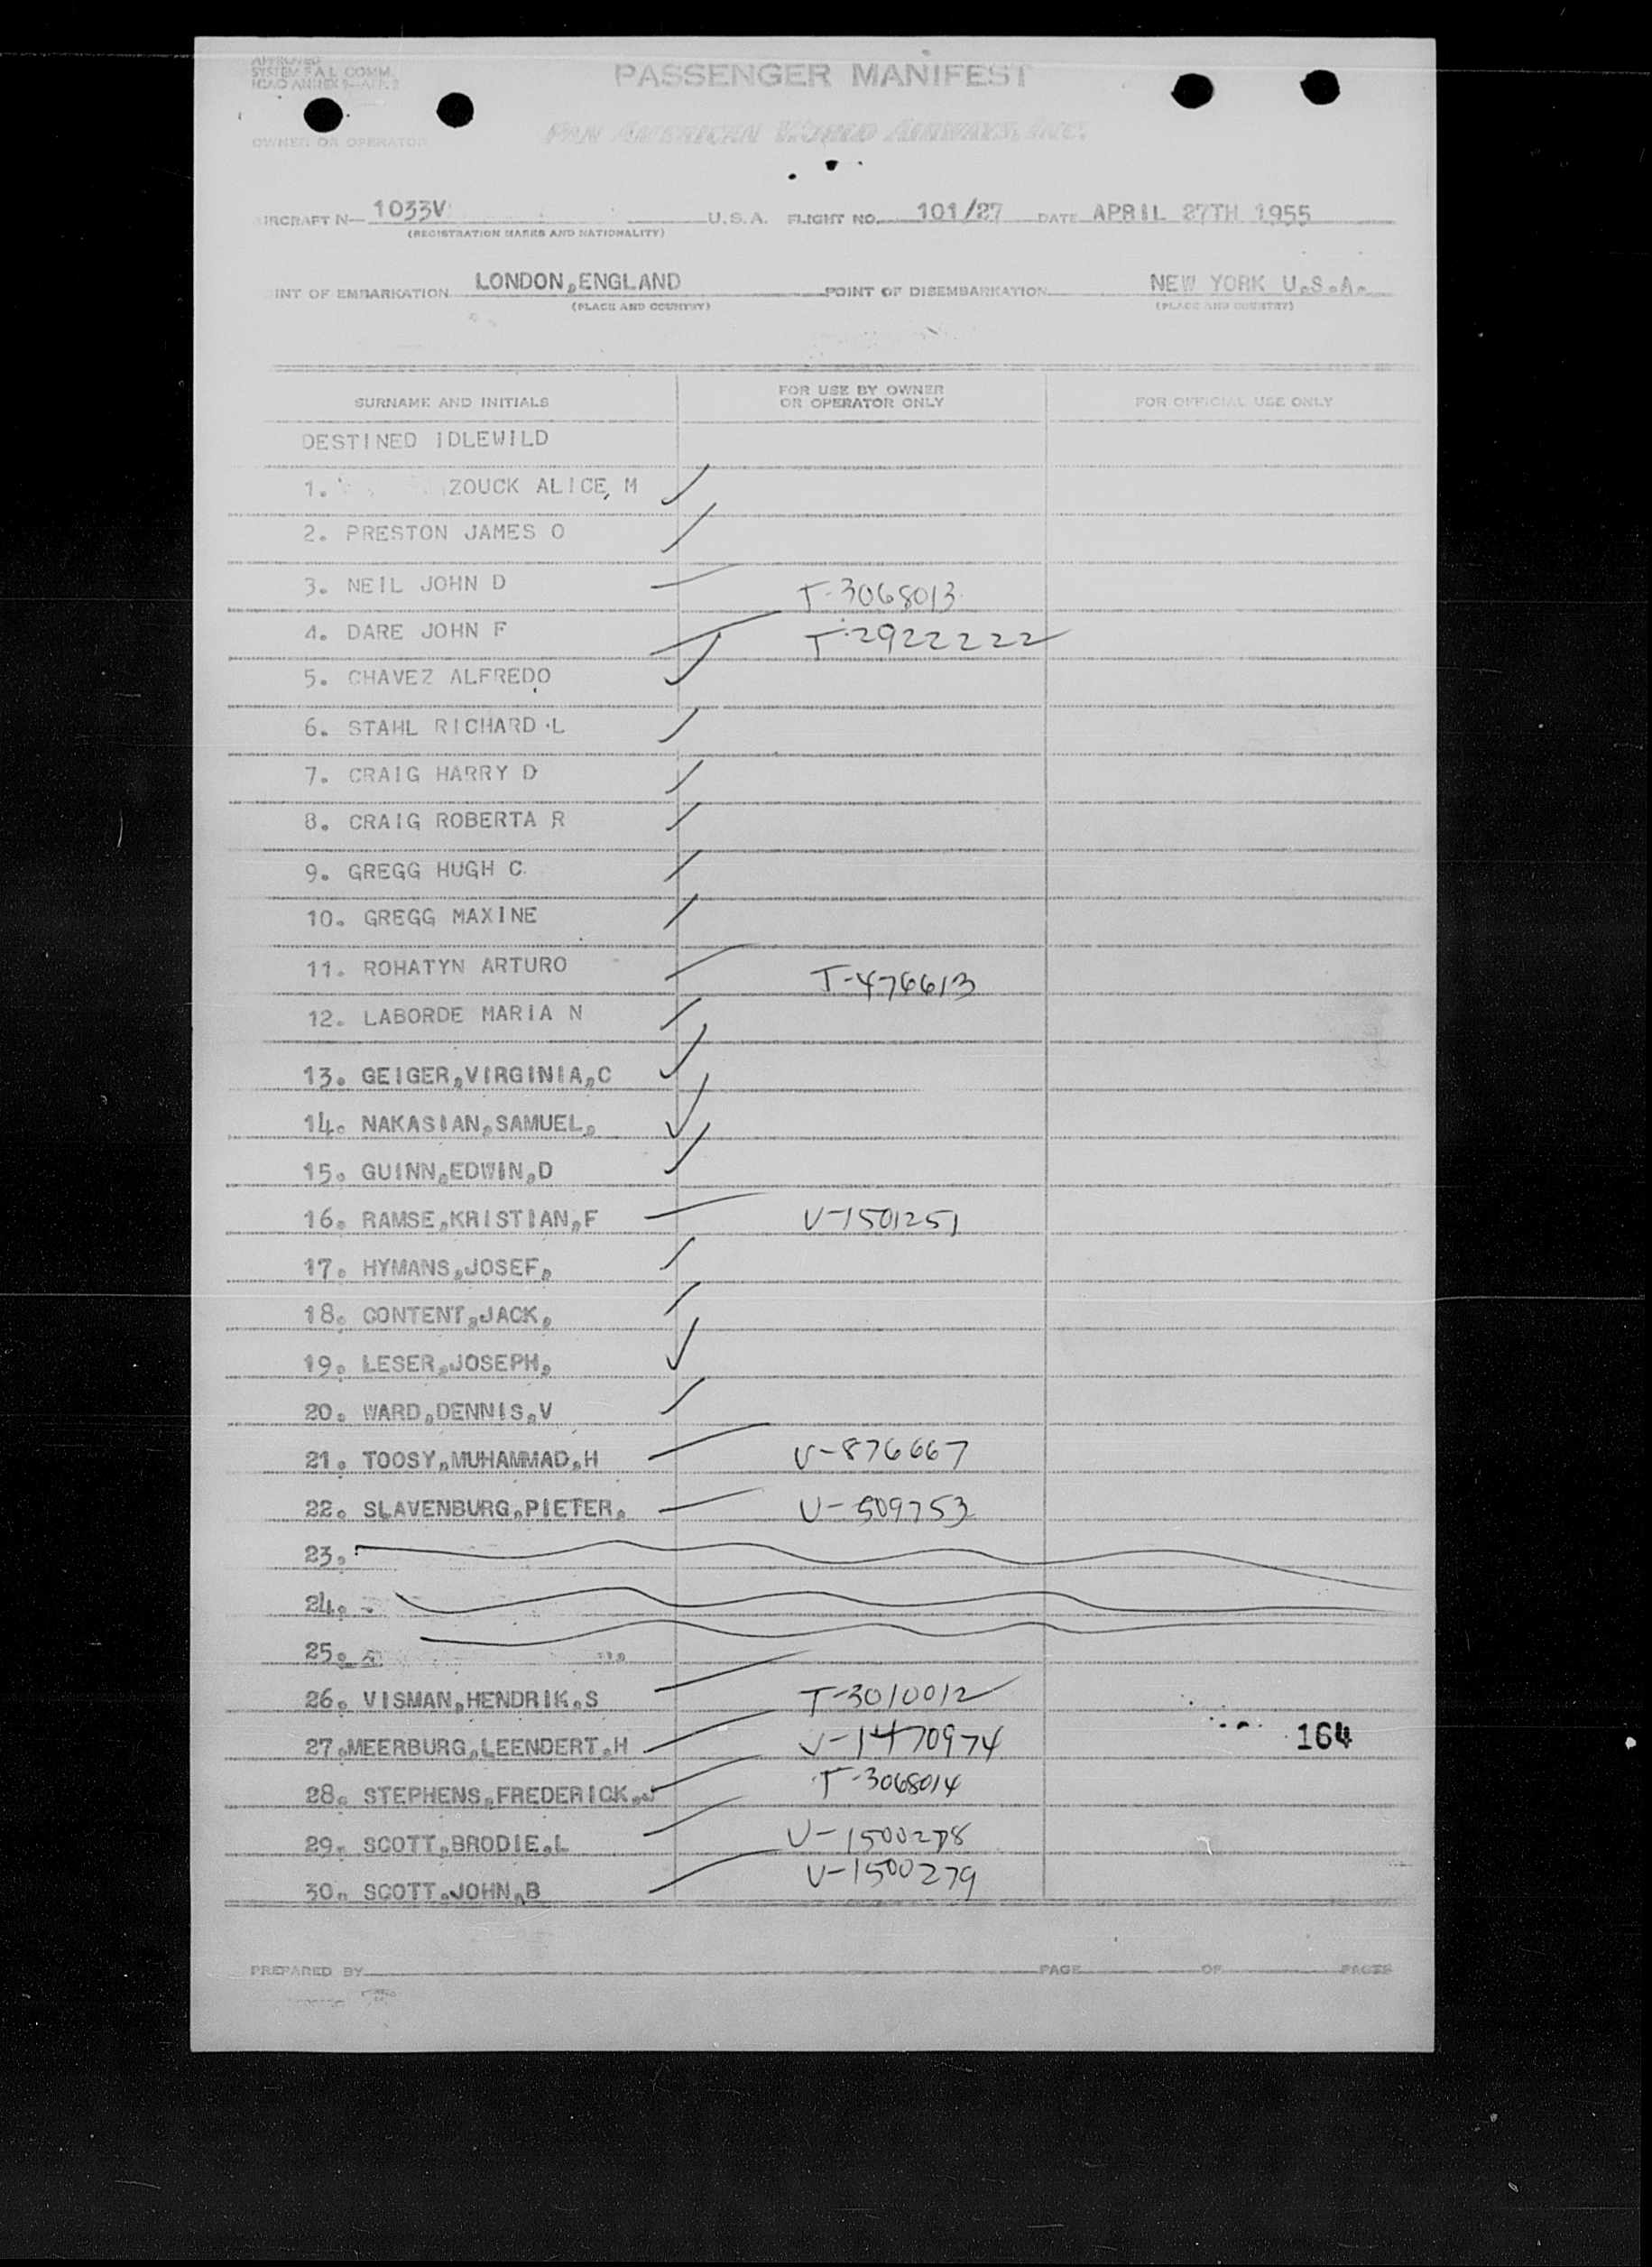 APPROVED
SYSTEM F A L COMM.
ICAO ANNEX 9—APP. 2
PASSENGER MANIFEST
OWNER OR OPERATOR
PAN AMERICAN WORLD AIRWAYS, INC.
IRCRAFT N— 1033V U.S.A. FLIGHT NO. 101/27 DATE APRIL 27TH 1955
(REGISTRATION MARKS AND NATIONALITY)
INT OF EMBARKATION LONDON,ENGLAND POINT OF DISEMBARKATION NEW YORK U.S.A.
(PLACE AND COUNTRY) (PLACE AND COUNTRY)
SURNAME AND INITIALS FOR USE BY OWNER OR OPERATOR ONLY FOR OFFICIAL USE ONLY
DESTINED IDLEWILD
1. ZOUCK ALICE, M
2. PRESTON JAMES O
3. NEIL JOHN D T-3068013
4. DARE JOHN F T-2922222
5. CHAVEZ ALFREDO
6. STAHL RICHARD L
7. CRAIG HARRY D
8. CRAIG ROBERTA R
9. GREGG HUGH C
10. GREGG MAXINE
11. ROHATYN ARTURO T-476613
12. LABORDE MARIA N
13. GEIGER,VIRGINIA,C
14. NAKASIAN,SAMUEL,
15. GUINN,EDWIN,D
16. RAMSE,KRISTIAN,F V-1501251
17. HYMANS,JOSEF,
18. CONTENT,JACK,
19. LESER,JOSEPH,
20. WARD,DENNIS,V
21. TOOSY,MUHAMMAD,H V-876667
22. SLAVENBURG,PIETER, V-509753
23.
24.
25.
26. VISMAN,HENDRIK,S T-3010012
27.MEERBURG,LEENDERT,H V-1470974 164
28. STEPHENS,FREDERICK, T-3068014
29. SCOTT,BRODIE,L V-1500278
30. SCOTT,JOHN,B V-1500279
PREPARED BY PAGE OF PAGES